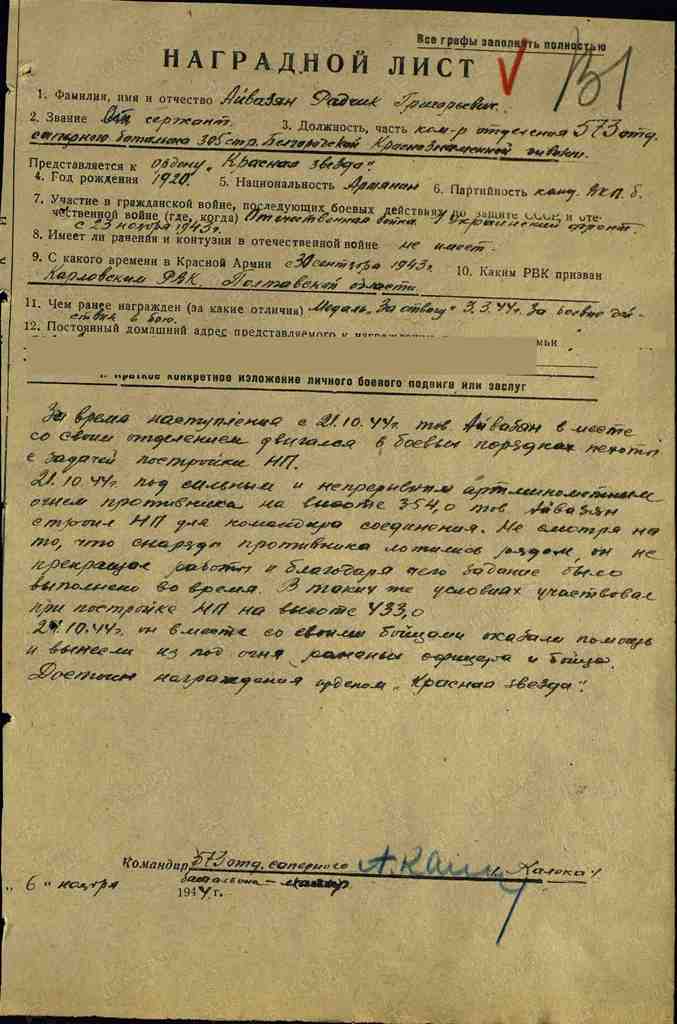 Все графы заполнять полностью
НАГРАДНОЙ ЛИСТ
1. Фамилия, имя и отчество Айвазян Радик Григорьевич.
2. Звание Ст сержант. 3. Должность, часть ком-р отделения 573 отд.
саперного батальона 305 стр. Белгородской Краснознаменной дивизии.
Представляется к ордену „Красная звезда".
4. Год рождения 1920. 5. Национальность Армянин 6. Партийность канд. ВКП.б.
7. Участие в гражданской войне, последующих боевых действиях по защите СССР и оте-
чественной войне (где, когда) Отечественная война Украинский фронт.
с 23 ноября 1943г.
8. Имеет ли ранения и контузии в отечественной войне не имеет.
9. С какого времени в Красной Армии с 30 сентября 1943г. 10. Каким РВК призван
Карловским РВК. Полтавской области.
11. Чем ранее награжден (за какие отличия) Медаль „За отвагу" 3.3.44г. За боевые дей-
ствия в бою.
12. Постоянный домашний адрес представляемого к
Краткое конкретное изложение личного боевого подвига или заслуг
За время наступления с 21.10.44г. тов Айвазян в месте
со своим отделением двигался в боевых порядках пехоты
с задачей постройки НП.
21.10.44г. под сильным и непрерывным артминометным
огнем противника на высоте 354,0 тов Айвазян
строил НП для командира соединения. Не смотря на
то, что снаряды противника ложились рядом, он не
прекращал работы и благодаря чего задание было
выполнено во время. В таких же условиях участвовал
при постройке НП на высоте 433,0
10.44г. он в месте со своими бойцами оказали помощь
и вынесли из под огня раненых офицера и бойца.
Достоин награждения орденом „Красная звезда".
Командир 573 отд. саперного
батальона – майор
„6" ноября 1944 г.